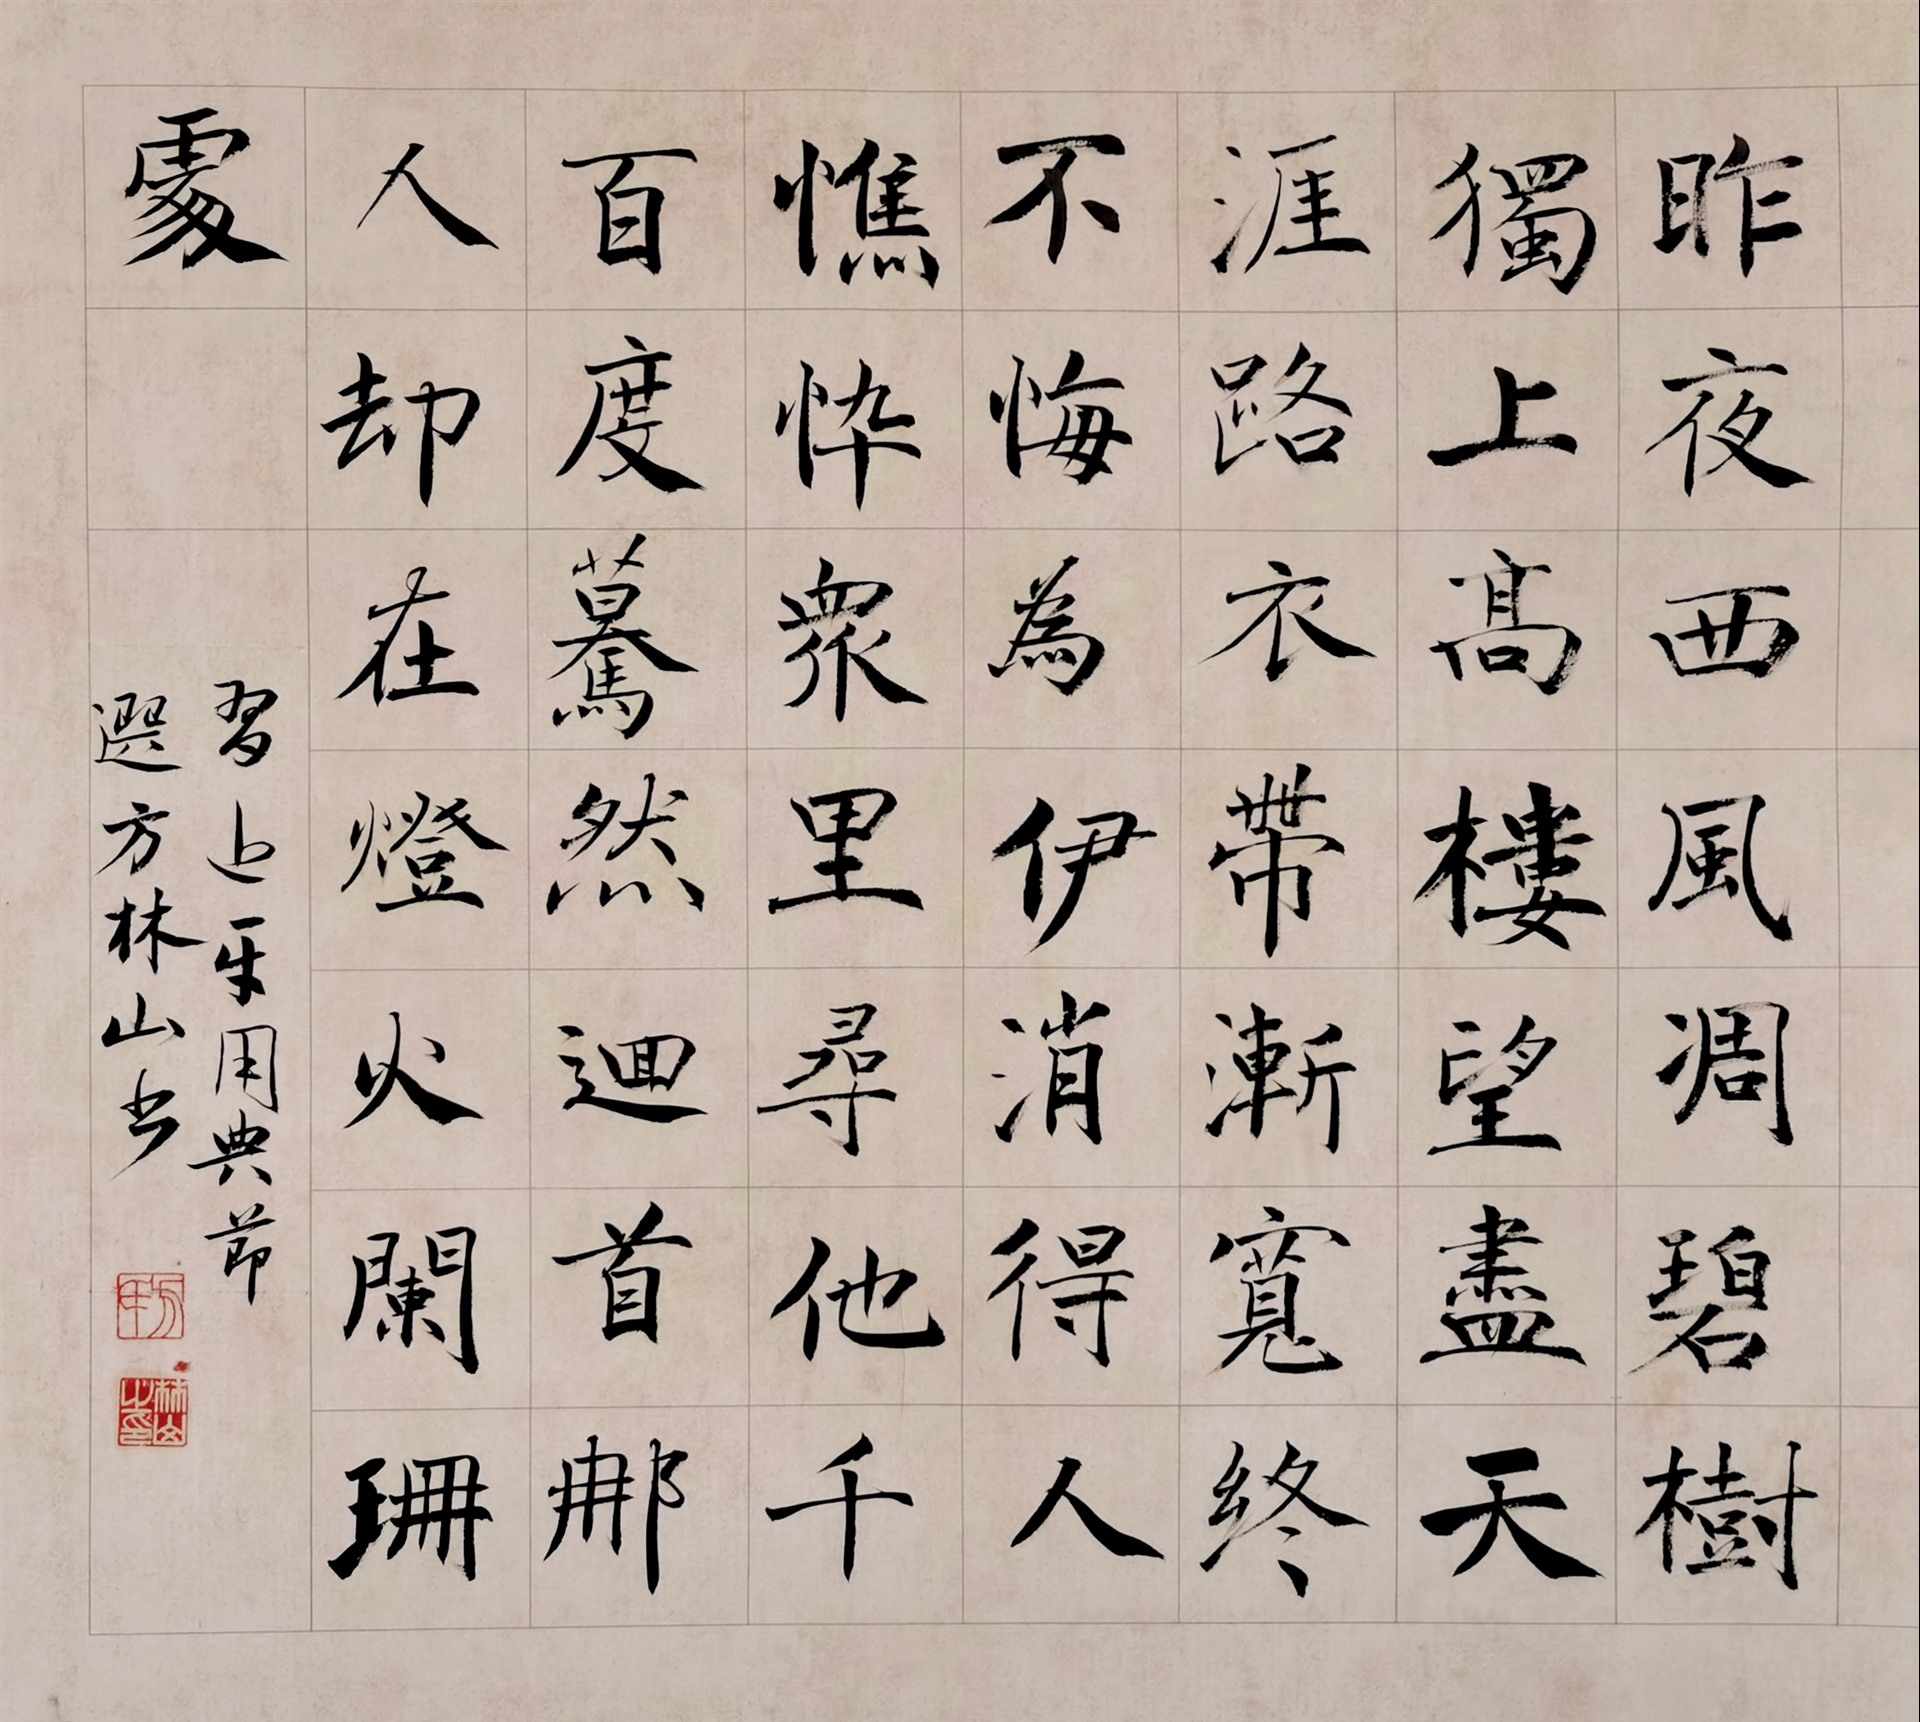 昨夜西風凋碧樹
獨上高樓望盡天
涯路衣帶漸寬終
不悔為伊消得人
憔悴衆里尋他千
百度驀然迴首那
人却在燈火闌珊
處
習近平用典節
選方林山書
林山之印